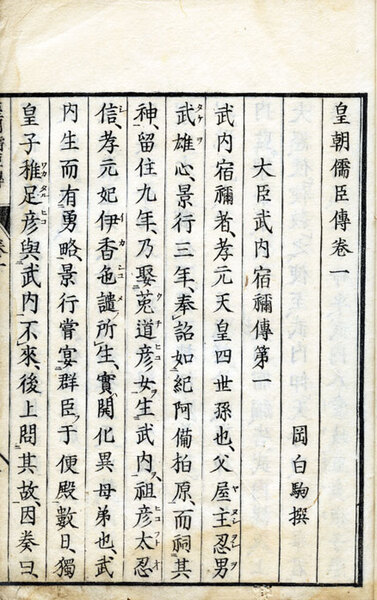 皇朝儒臣傳卷一
岡白駒撰
大臣武内宿禰傳第一
武内宿禰者、孝元天皇四世孫也、父屋主忍男
武雄心、景行三年、奉詔如紀阿備拍原、而祠其
神、留住九年、乃娶菟道彦女、生武内、祖彦太忍
信、孝元妃伊香色謎所生、實開化異母弟也、武
内生而有勇略、景行嘗宴群臣于便殿數日、獨
皇子稚足彦與武内不來、後上問其故、因奏曰、